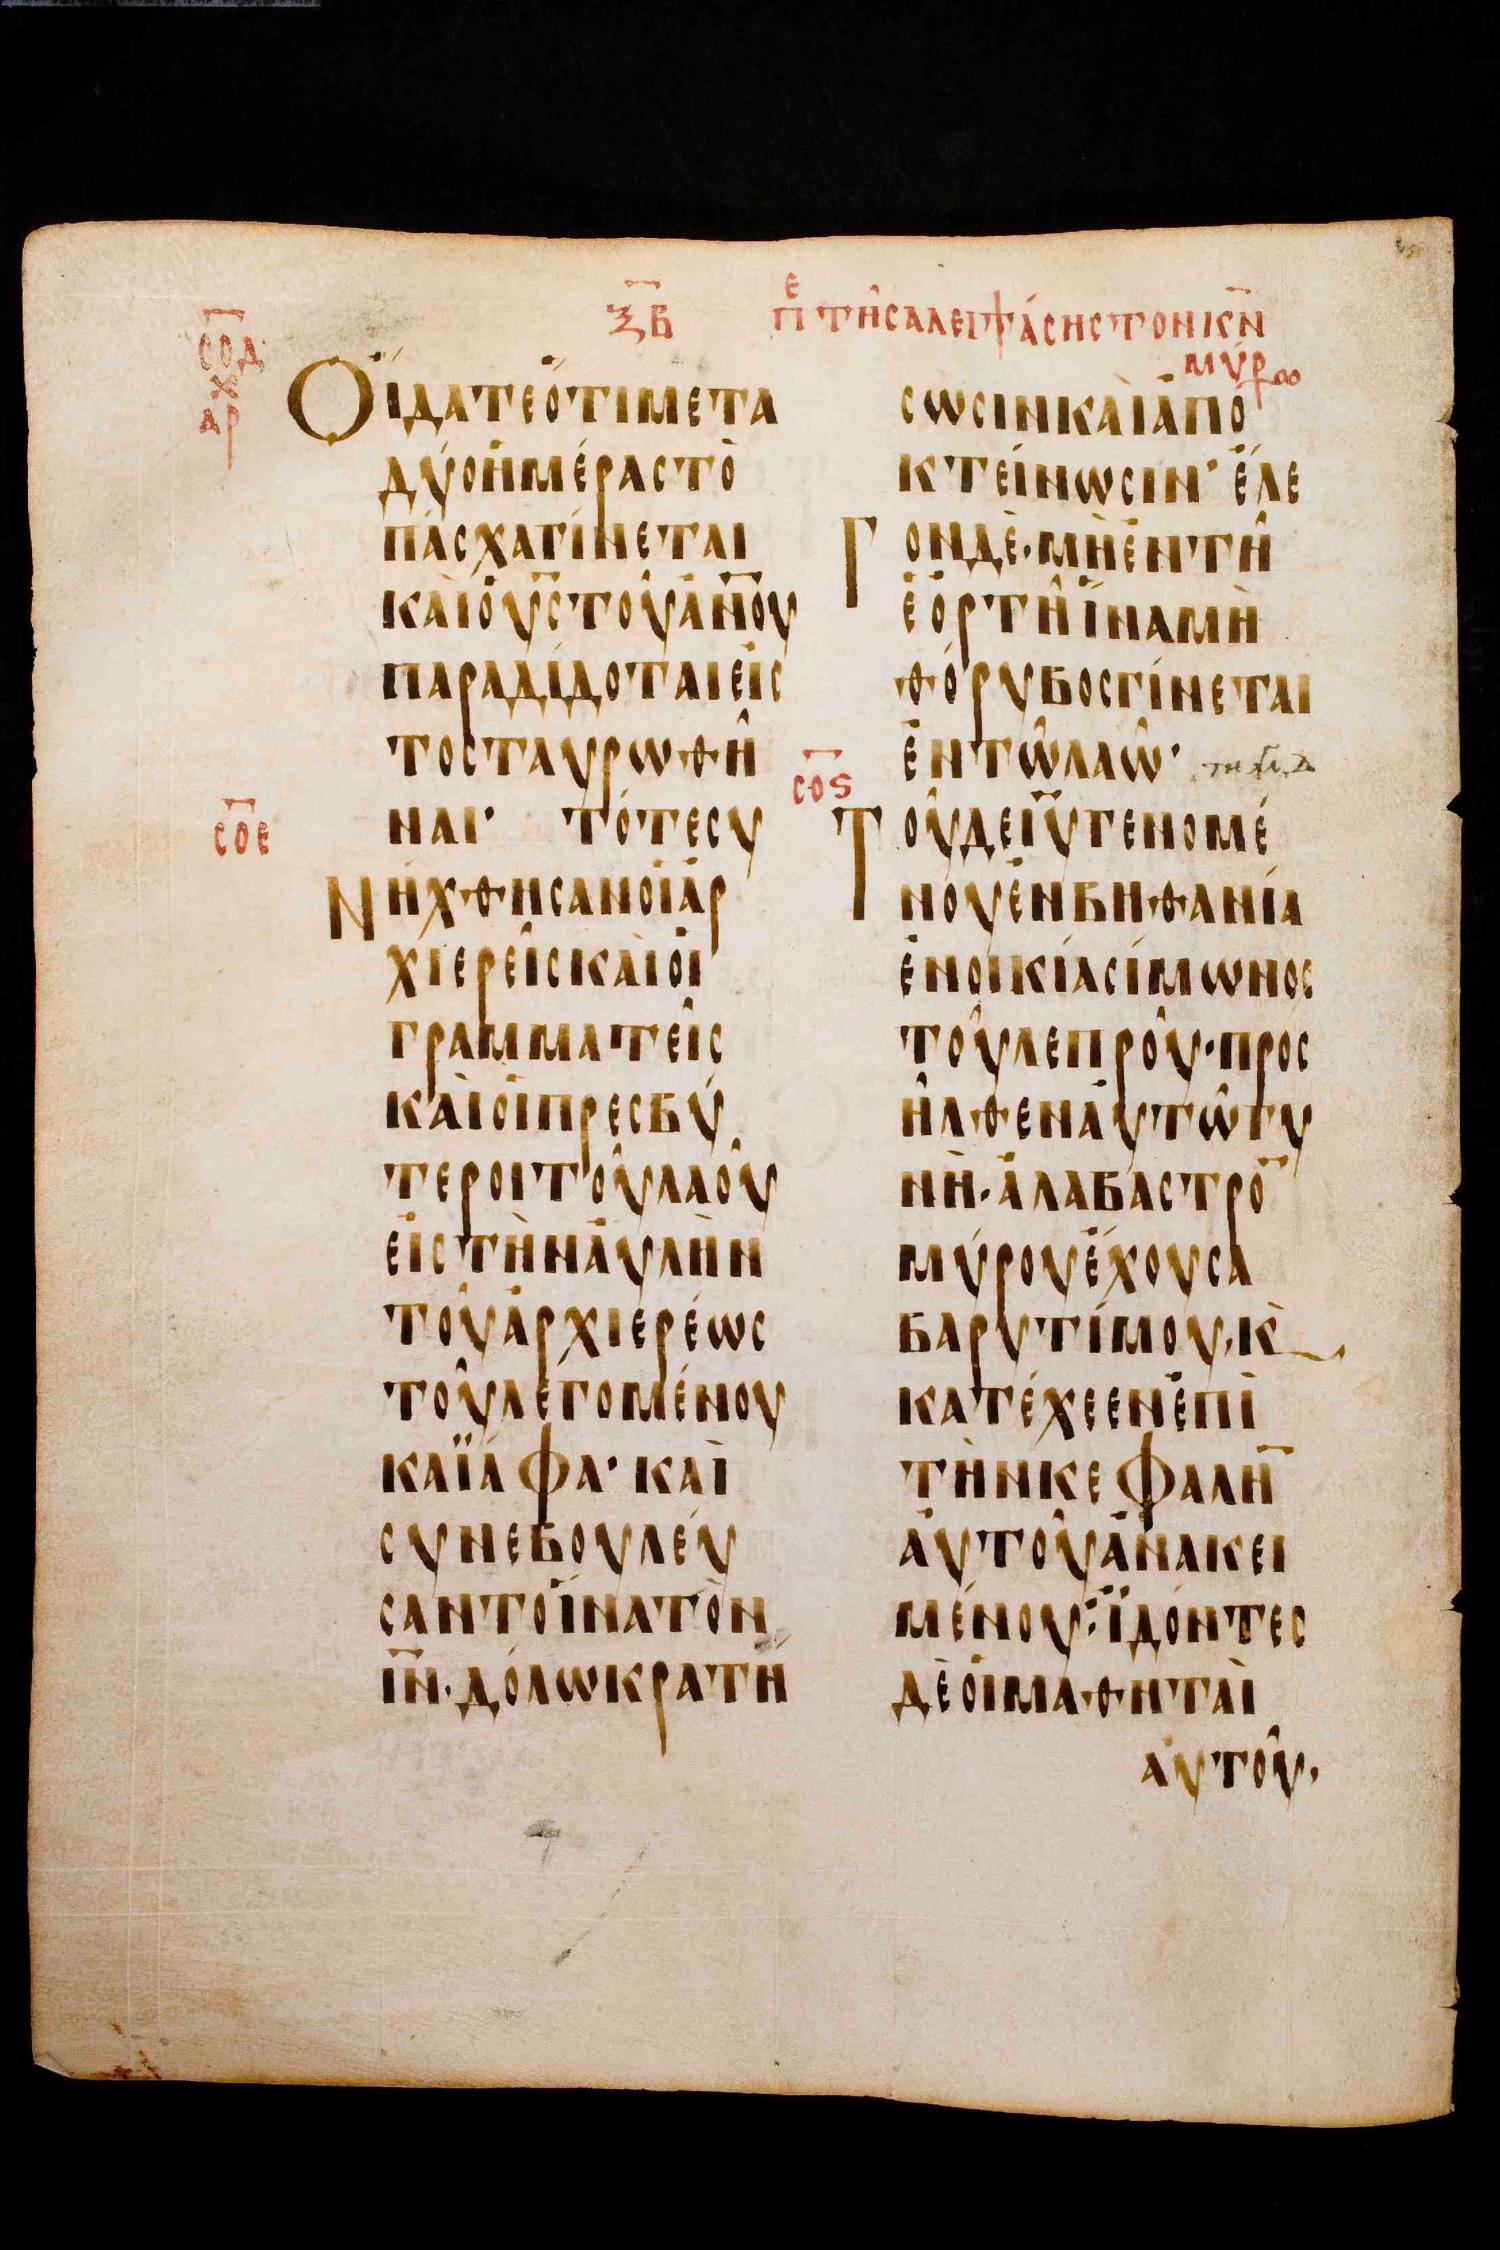 ξ̅β̅
πε τῆσαλειψάσηστονκ̅ν̅
μύρω
σ̅ο̅δ̅
χ
αρ
Οἴδατεὅτιμετα
δύοἡμέραστὸ
πάσχαγίνεται
καὶὁυ̅σ̅τοῦἀν̅ο̅υ
παραδίδοταιεἰσ
τοσταυρωθῆ
ναι· τότεσυ
σ̅ο̅ε̅
Νήχθησανοἱἀρ
χιερεῖσκαὶοἱ
γραμματεῖσ
καὶοἱπρεσβύ
τεροιτοῦλαοῦ
εἰστὴναὐλὴν
τοῦἀρχιερέωσ
τοῦλεγομένου
καϊάφα· καὶ
συνεβουλεύ
σαντοἵνατὸν
ι̅ν̅·δόλωκρατή
σωσινκαὶἀπο
κτείνωσιν· ἔλε
Γονδὲ·μὴἐντῆ
ἑορτῆἵναμὴ
θόρυβοσγίνεται
ἐντῶλαῶ·
σ̅ο̅ϛ̅
Τοῦδεἰ̅υ̅γενομέ
νουἐνβηθανία
ἐνοικίασίμωνοσ
τοῦλεπροῦ·προσ
ῆλθεναὐτῶγυ
νὴ·ἀλαβαστρο̅
μύρουἔχουσα
βαρυτίμου,κ̀
κατέχεενἐπὶ
τὴνκεφαλη̅
αὐτοῦἀνακει
μένου·ἰδόντεσ
δὲοἱμαθηταὶ
αὐτοῦ·